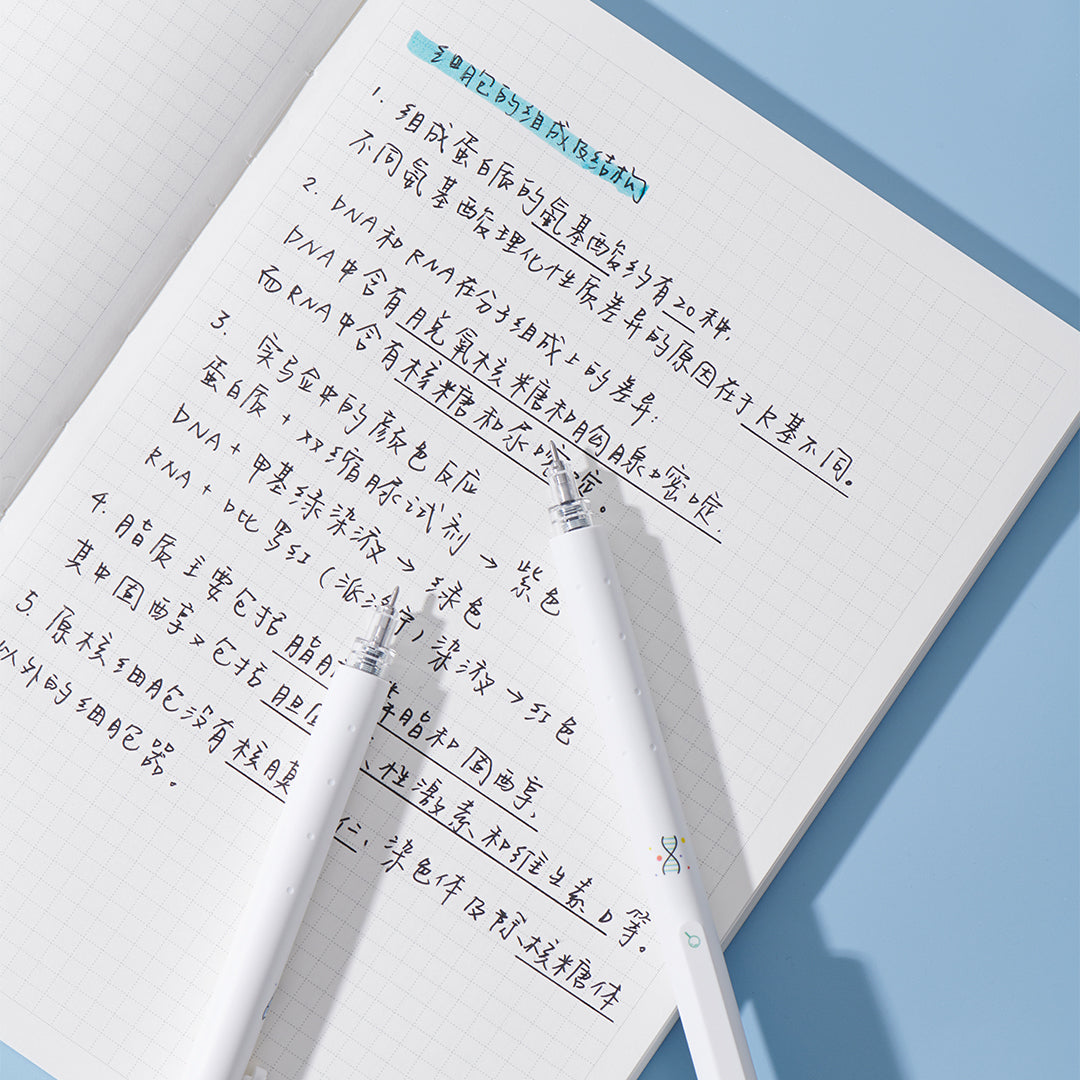 细胞的组成及结构
1. 组成蛋白质的氨基酸约有20种,
不同氨基酸理化性质差异的原因在于R基不同。
2. DNA和RNA在分子组成上的差异:
DNA中含有脱氧核糖和胸腺嘧啶,
而RNA中含有核糖和尿嘧啶。
3. 实验中的颜色反应
蛋白质 + 双缩脲试剂 → 紫色
DNA + 甲基绿染液 → 绿色
RNA + 吡罗红(派洛宁)染液 → 红色
4. 脂质主要包括脂肪 脂和固醇,
其中固醇又包括胆 、性激素和维生素D等。
5. 原核细胞没有核膜 仁、染色体及除核糖体
以外的细胞器。